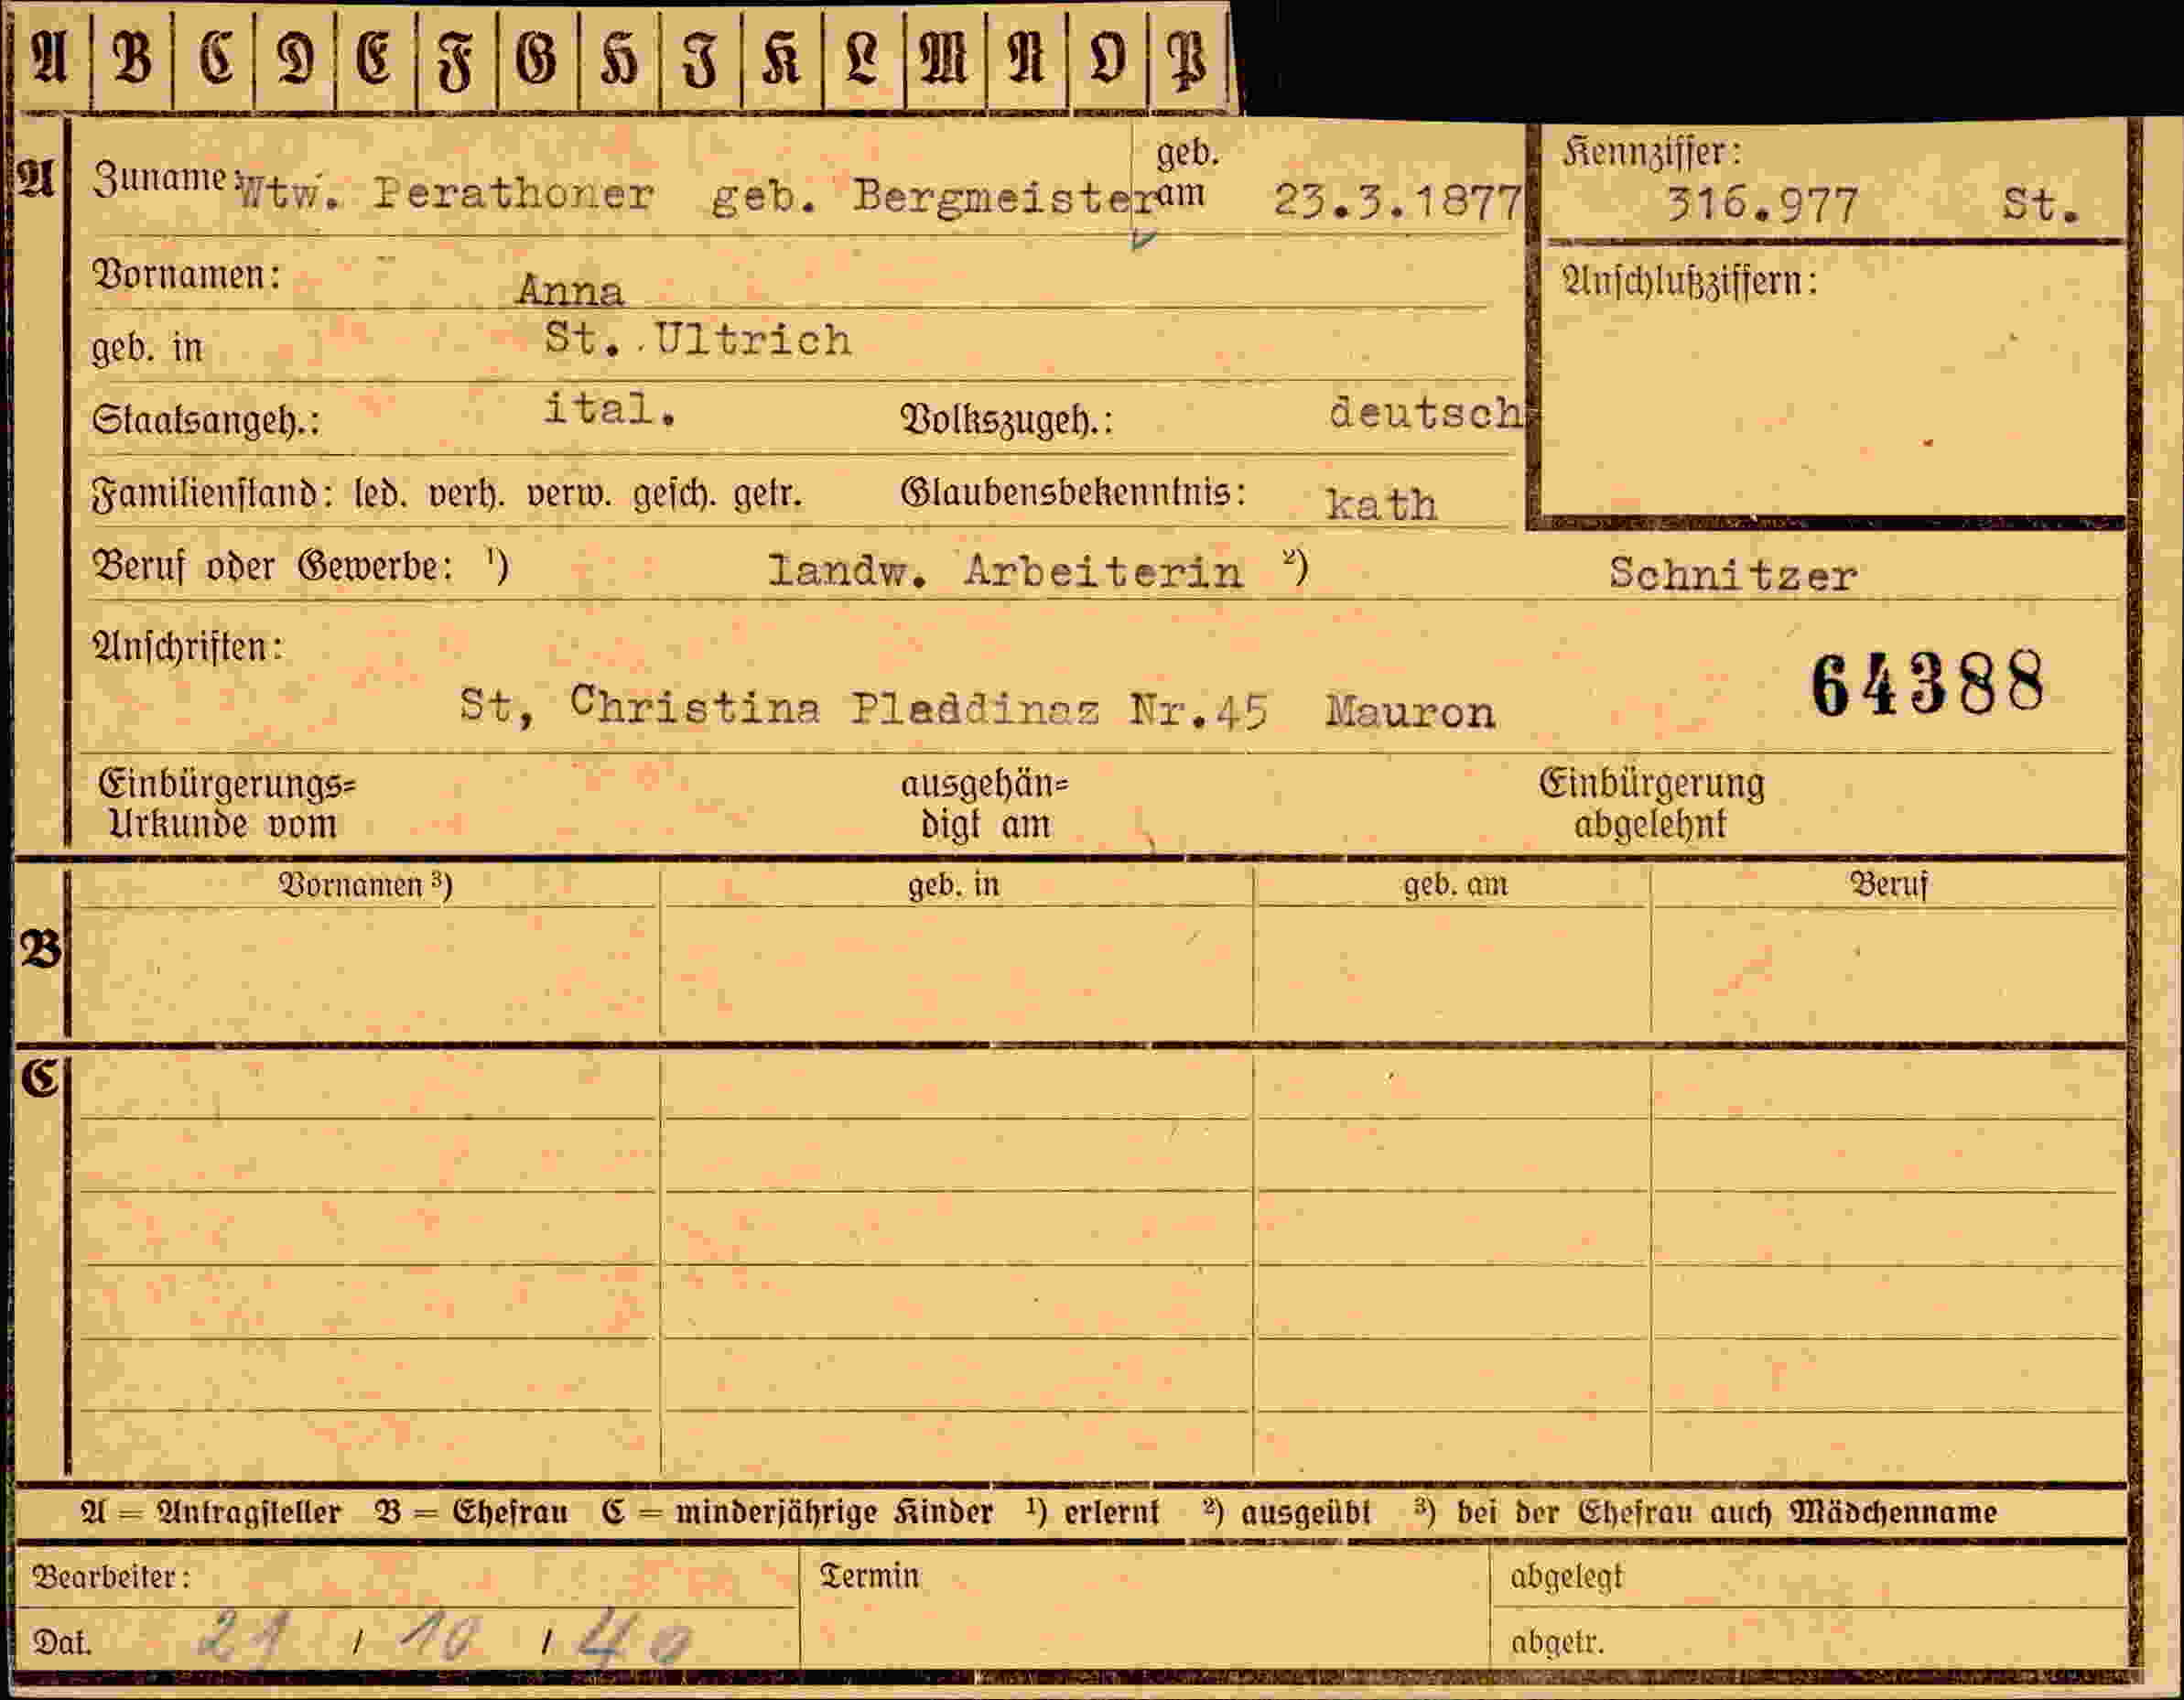 A B C D E F G H I K L M N O P
A Zuname: Wtw. Perathoner geb. Bergmeister geb. am 23.3.1877 Kennziffer: 316.977 St.
Vornamen: Anna Anschlußziffern:
geb. in St. Ultrich
Staatsangeh.: ital. Volkszugeh.: deutsch
Familienstand: led. verh. verw. gesch. getr. Glaubensbekenntnis: kath
Beruf oder Gewerbe: ¹) landw. Arbeiterin ²) Schnitzer
Anschriften: 64388
St, Christina Pleddinaz Nr.45 Mauron
Einbürgerungs= ausgehän= Einbürgerung
Urkunde vom digt am abgelehnt
Vornamen ³) geb. in geb. am Beruf
B
C
A = Antragsteller B = Ehefrau C = minderjährige Kinder ¹) erlernt ²) ausgeübt ³) bei der Ehefrau auch Mädchenname
Bearbeiter: Termin abgelegt
Dat. 21 / 10 / 40 abgetr.